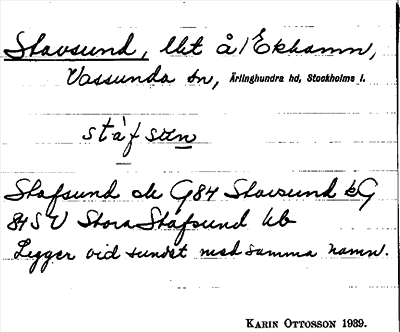 Stavsund, lht å/Ekhamn,
Vassunda sn, Ärlinghundra hd, Stockholms l.
stàf sun
Stafsund ek G84 Stavsund kG
84SV Stora Stafsund kb
Ligger vid sundet med samma namn.
KARIN OTTOSSON 1939.